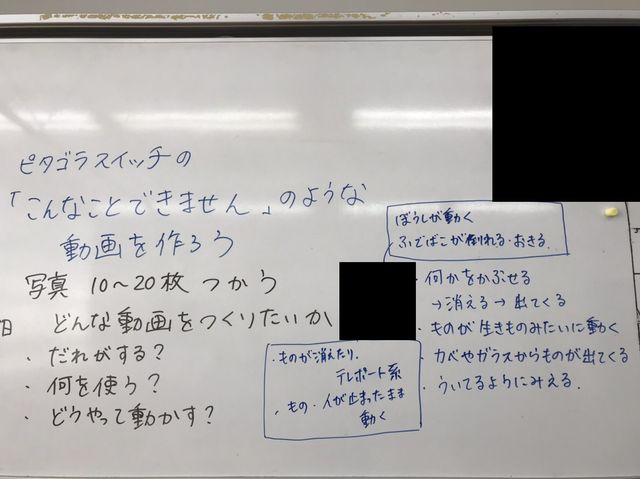 ピタゴラスイッチの
「こんなことできません」のような
動画を作ろう
写真 10〜20枚 つかう
日 どんな動画をつくりたいか
・だれがする?
・何を使う?
・どうやって動かす?
・ものが消えたり、
テレポート系
・もの・人が止まったまま
動く
ぼうしが動く
ふでばこが倒れる・おきる
・何かをかぶせる
→消える→出てくる
・ものが生きものみたいに動く
・カベやガラスからものが出てくる
・ういてるようにみえる.